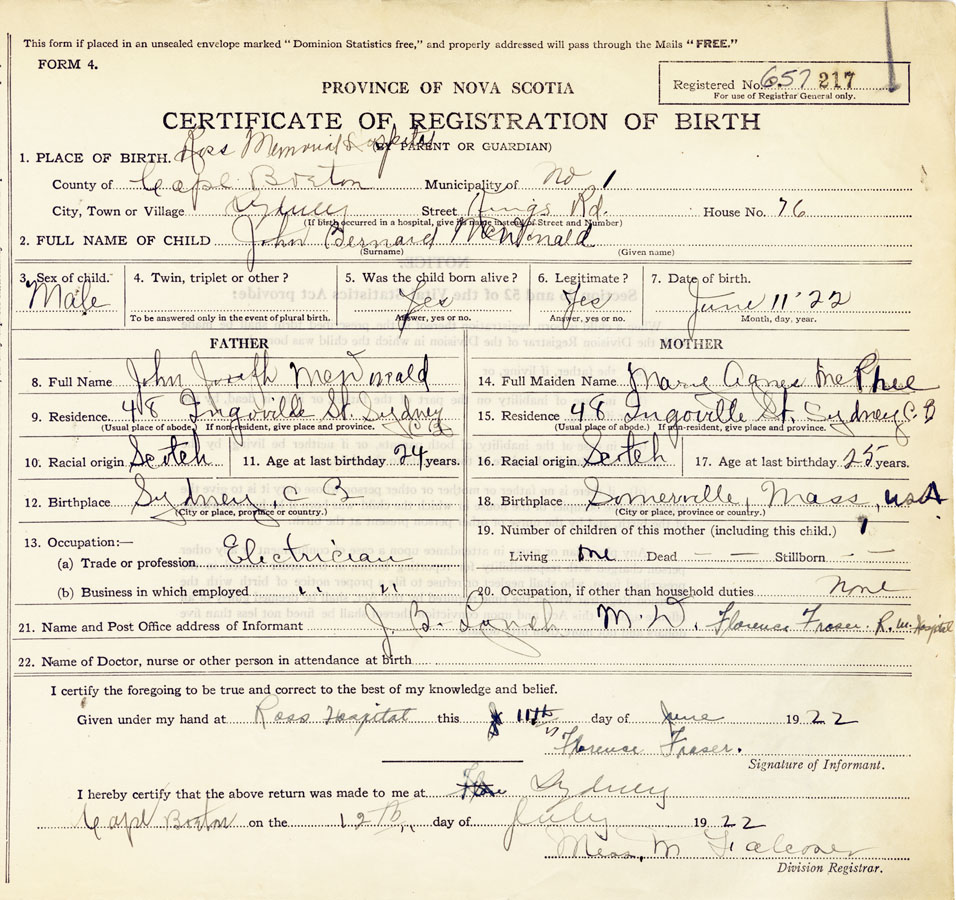 This form if placed in an unsealed envelope marked "Dominion Statistics free," and properly addressed will pass through the Mails "FREE."
FORM 4.
Registered No. 657 217
For use of Registrar General only.
PROVINCE OF NOVA SCOTIA
CERTIFICATE OF REGISTRATION OF BIRTH
Ross Memorial Hospital
(BY PARENT OR GUARDIAN)
1. PLACE OF BIRTH.
County of Cape Breton Municipality of No 1
City, Town or Village Sydney Street Kings Rd. House No. 76
(If birth occurred in a hospital, give its name instead of Street and Number)
2. FULL NAME OF CHILD John Bernard McDonald
(Surname) (Given name)
3. Sex of child. 4. Twin, triplet or other? 5. Was the child born alive? 6. Legitimate? 7. Date of birth.
Male Yes Yes June 11 '22
To be answered only in the event of plural birth. Answer, yes or no. Answer, yes or no. Month, day, year.
FATHER MOTHER
8. Full Name John Joseph McDonald 14. Full Maiden Name Marie Agnes McPhee
9. Residence. 48 Ingoville St. Sydney C.B. 15. Residence 48 Ingoville St. Sydney C.B
(Usual place of abode.) If non-resident, give place and province. (Usual place of abode.) If non-resident, give place and province.
10. Racial origin Scotch 11. Age at last birthday 24 years. 16. Racial origin Scotch 17. Age at last birthday 25 years.
12. Birthplace Sydney, C B 18. Birthplace Somerville, Mass, USA
(City or place, province or country.) (City or place, province or country.)
19. Number of children of this mother (including this child.) 1
13. Occupation:—
(a) Trade or profession Electrician Living one Dead — — Stillborn — —
(b) Business in which employed " " 20. Occupation, if other than household duties None
21. Name and Post Office address of Informant J. B. Lynch M.D. Florence Fraser. R. M. Hospital
22. Name of Doctor, nurse or other person in attendance at birth
I certify the foregoing to be true and correct to the best of my knowledge and belief.
Given under my hand at Ross Hospital this 11th day of June 1922
Florence Fraser.
Signature of Informant.
I hereby certify that the above return was made to me at Sydney
Cape Breton on the 12th day of July 1922
Miss. M Falconer
Division Registrar.